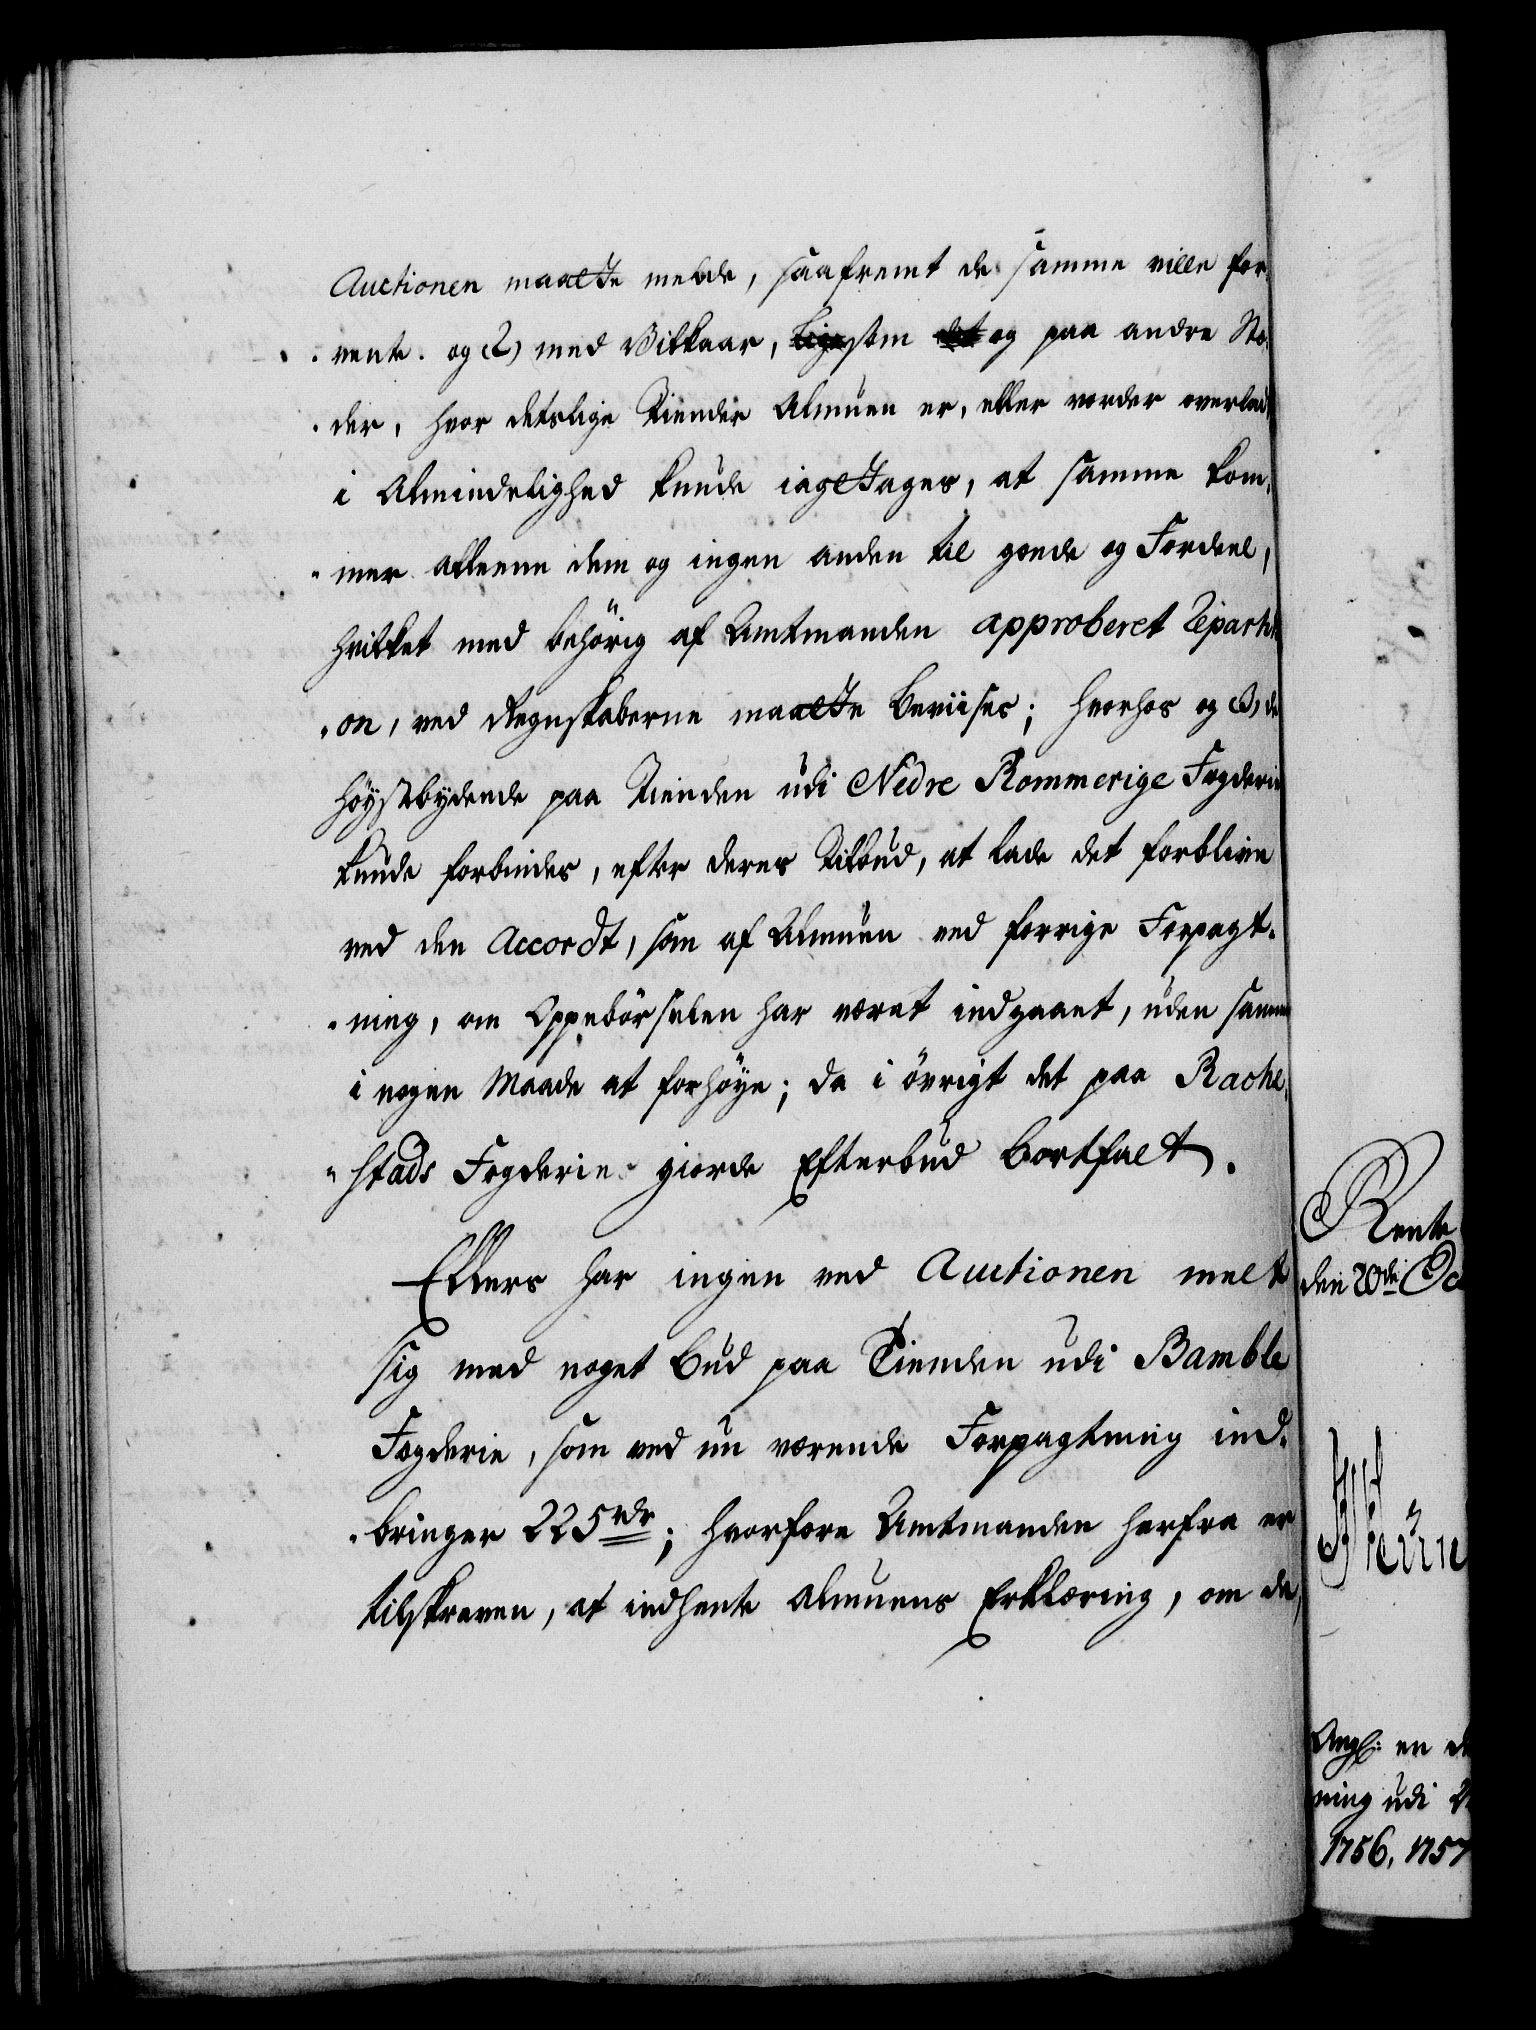 Auctionen maatte melde, saafremt de samme ville for-
-vente. og 2) med Vilkaar, Ligesom det og paa andre Stæ-
-der, hvor detslige Tiender Almuen er, eller vorder overladt
i Almindelighed kunde iagttages, at samme kom-
-mer alleene dem og ingen anden til goede og Fordeel,
hvilket med behörig af Amtmanden approberet Reparti-
-on, ved Regnskaberne maatte beviises; hvorhos og 3) de
höystbydende paa Tienden udi Nedre Rommerige Fogderie
kunde forbindes, efter deres Tilbud, at lade det forblive
ved den Accordt, som af Almuen ved forrige Forpagt-
-ning, om Oppebörselen har været indgaaet, uden samme
i nogen Maade at forhöye; da i övrigt det paa Rache-
-stads Fogderie giorde Efterbud bortfalt.
Ellers har ingen ved Auctionen meldt
sig med noget Bud paa Tienden udi Bamble
Fogderie, som ved nu værende Forpagtning ind-
-bringer 225 rdr; hvorfore Amtmanden herfra er
tilskreven, at indhente Almuens Erklæring, om de,
Rente
den 20de Oc
Ang: en
ning udi
1756, 1757